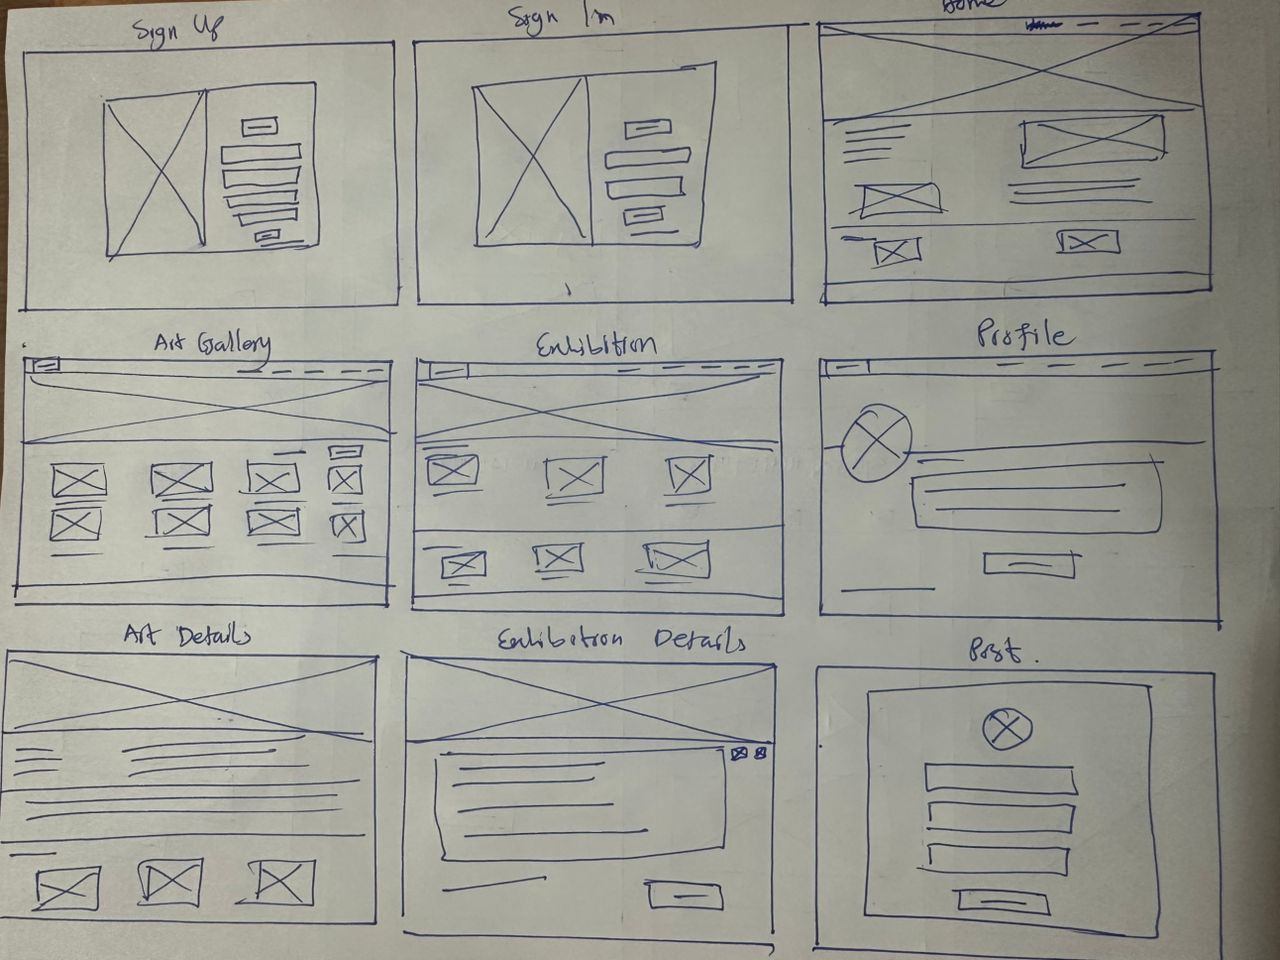 Sign Up
Sign In
Home
Art Gallery
Exhibition
Profile
Art Details
Exhibition Details
Post.